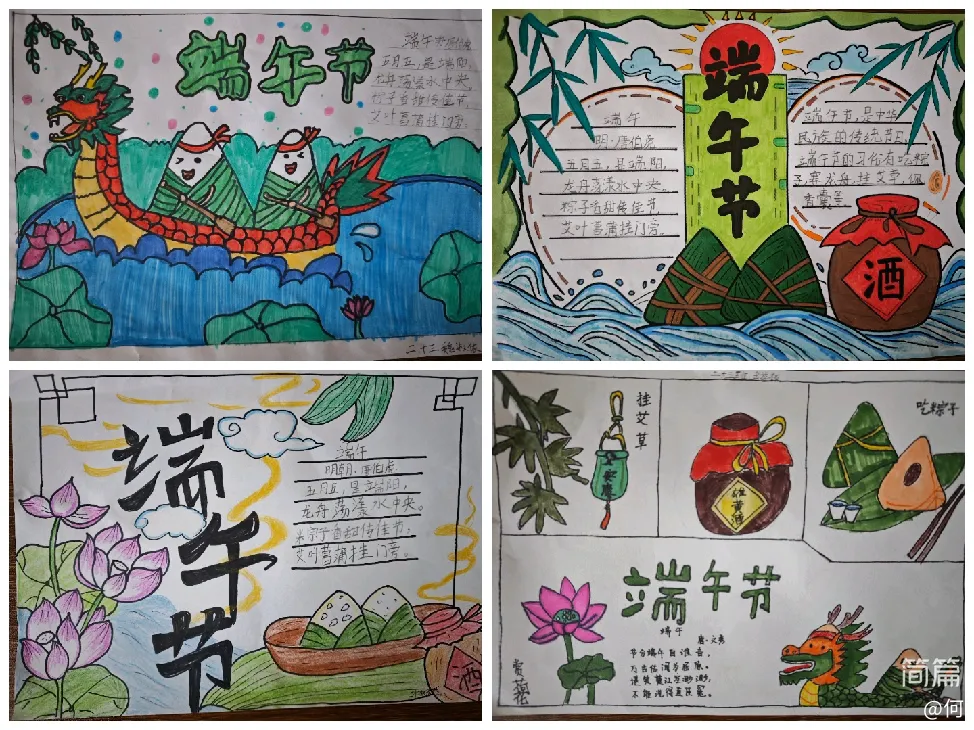 端午节
五月五,是端阳,
龙舟荡漾水中央
粽子香甜传佳节
艾叶菖蒲挂门旁。
端午节
端午
明·唐伯虎
五月五,是端阳,
龙舟荡漾水中央。
粽子香甜传佳节
艾叶菖蒲挂门旁。
端午节,是中华
民族的传统节日
端午节的习俗有吃粽
子,赛龙舟,挂艾草,佩
香囊
酒
端午节
端午
明朝·唐伯虎
五月五,是端阳,
龙舟荡漾水中央。
粽子香甜传佳节;
艾叶菖蒲挂门旁。
酒
挂艾草
雄黄酒
吃粽子
端午节
端午
唐·文秀
节分端午自谁言,
万古传闻为屈原。
堪笑楚江空渺渺,
不能洗得直臣冤。
赏荷花
简篇
@何